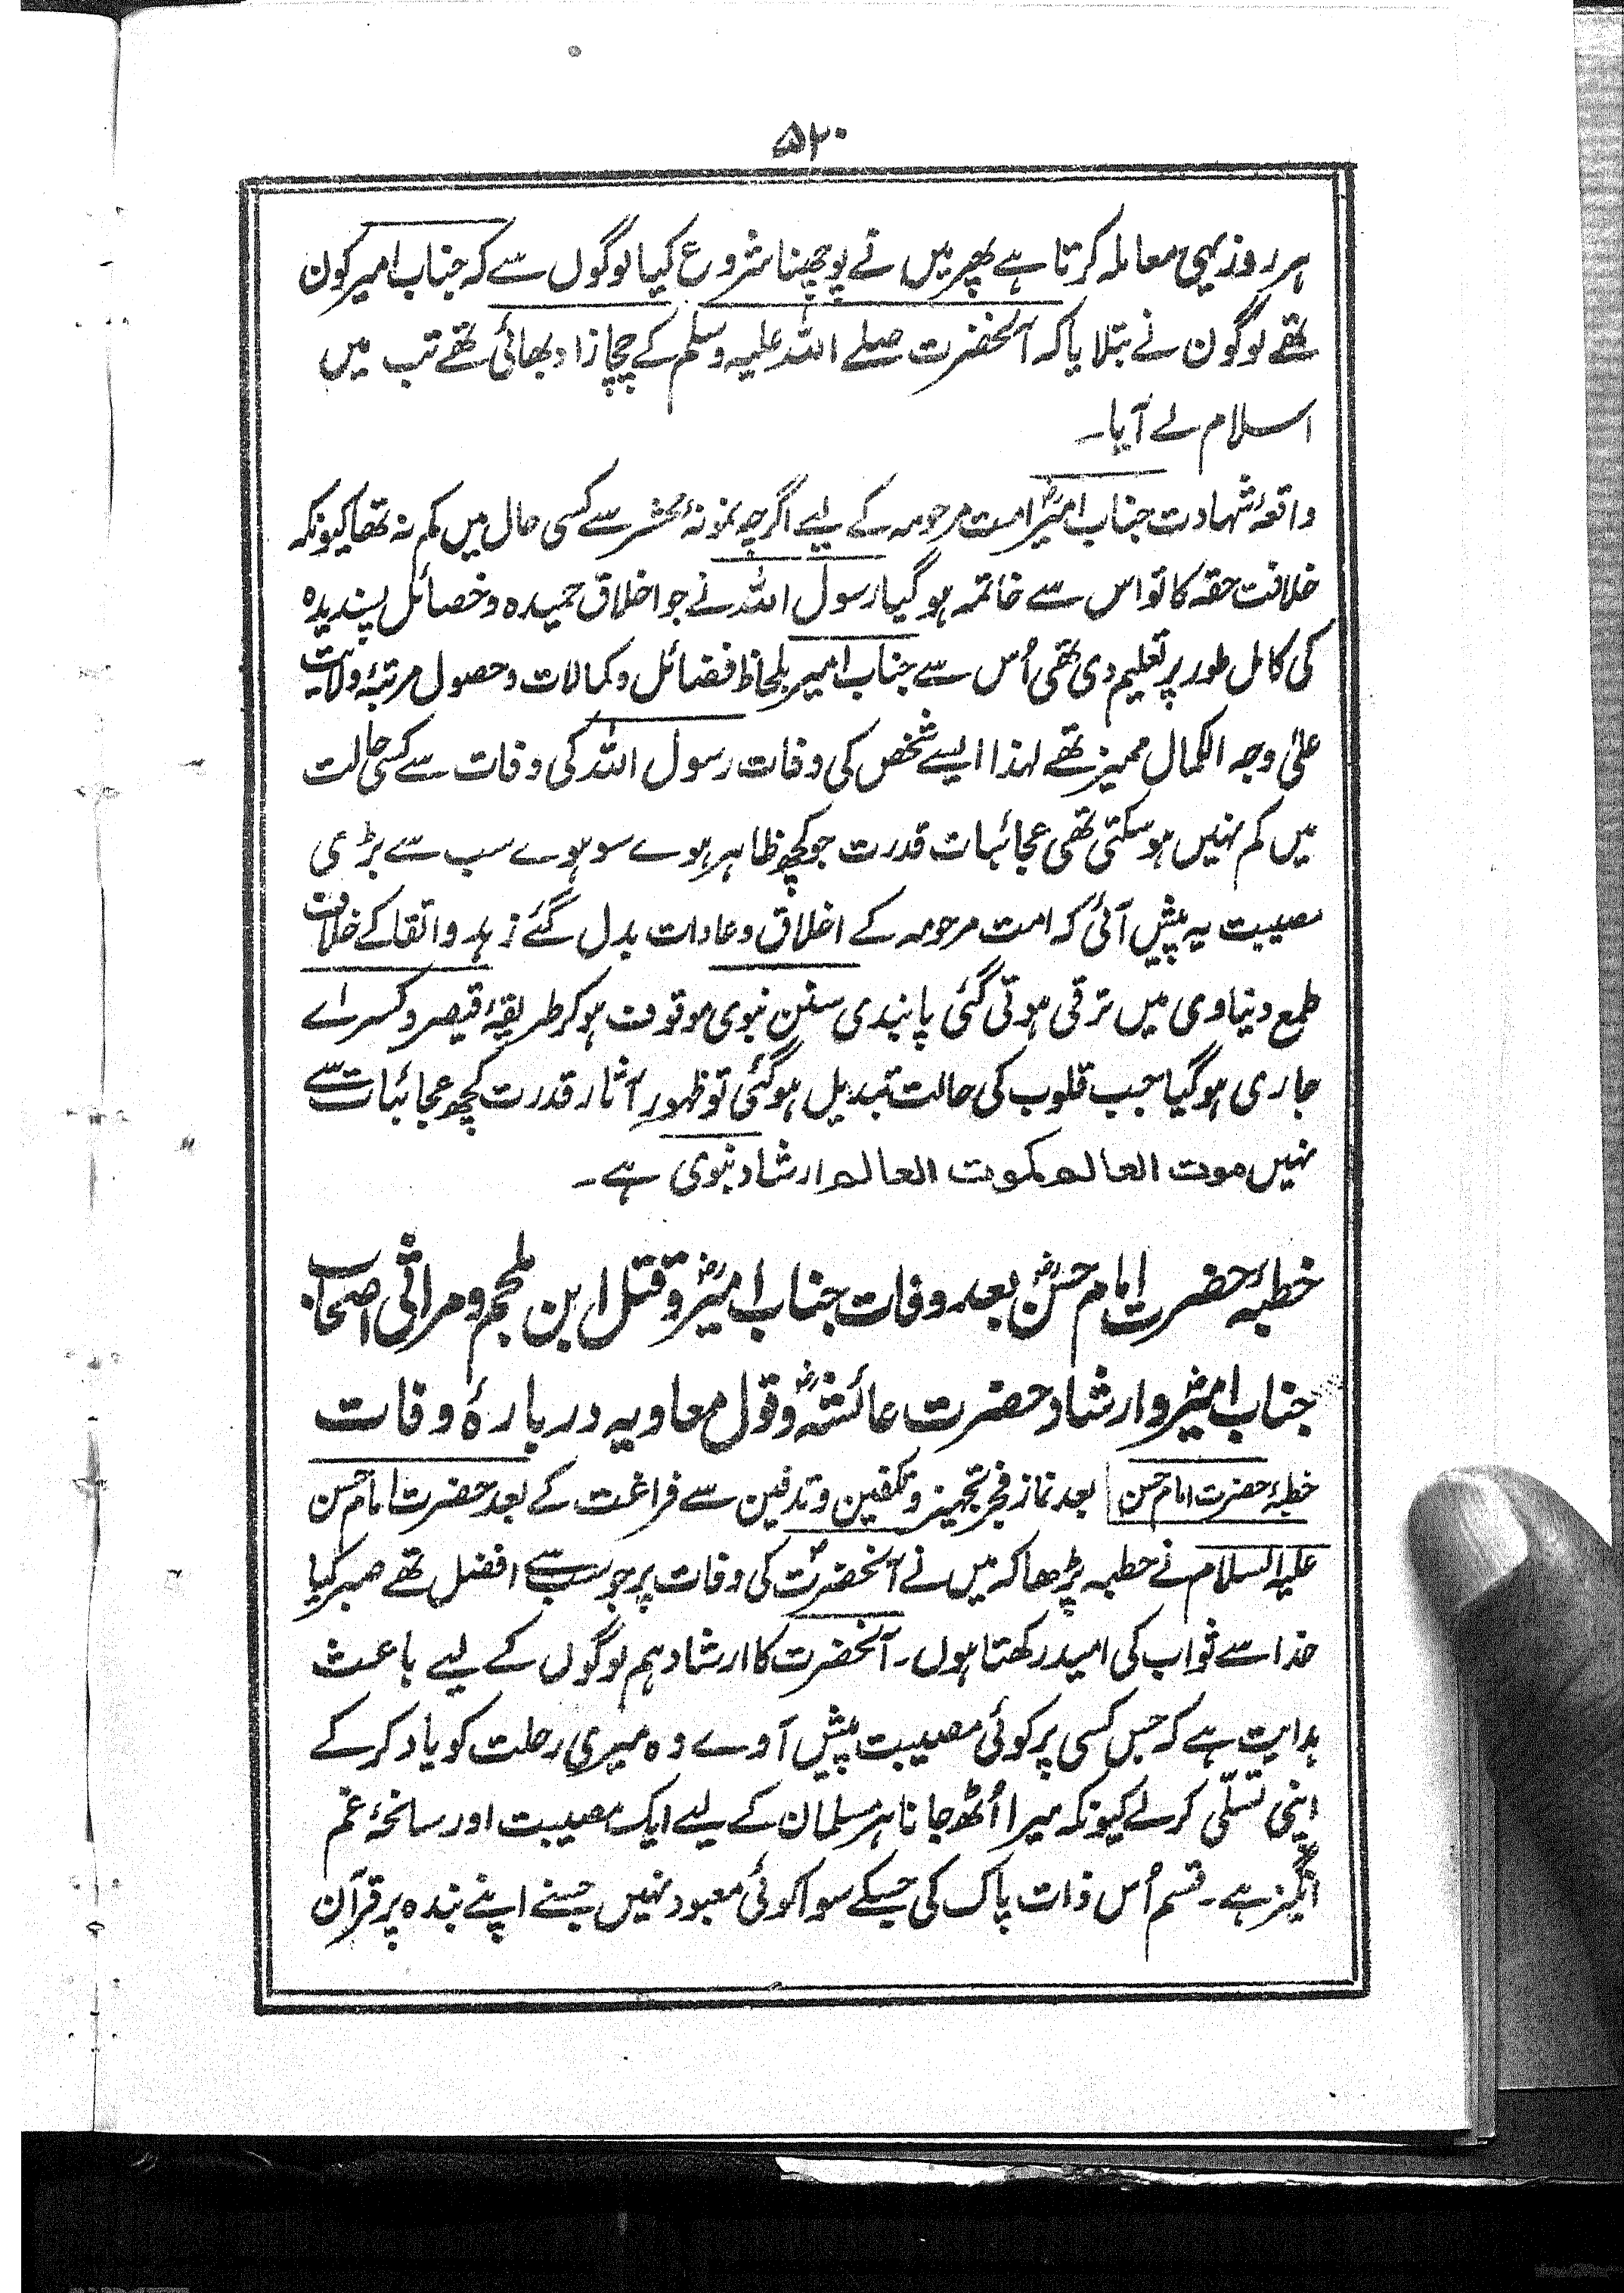 ۵۲۰
ہر روز یہی معاملہ کرتا ہے پھر میں نے پوچھنا شروع کیا لوگوں سے کہ جناب امیر کون
تھے لوگون نے بتلا یا کہ آنحضرت صلے اللہ علیہ وسلم کے چچا زاد بھائی تھے تب میں
اسلام لے آیا۔
واقعۂ شہادت جناب امیرؓ امت مرحومہ کے لیے اگرچہ نمونۂ محشر سے کسی حال میں کم نہ تھا کیونکہ
خلافت حقہ کا تو اس سے خاتمہ ہو گیا رسول اللہ نے جو اخلاق حمیدہ و خصائل پسندیدہ
کی کامل طور پر تعلیم دی تھی اُس سے جناب امیر بلحاظ فضائل و کمالات و حصول مرتبۂ ولایت
علیٰ وجہ الکمال ممیز تھے لہذا ایسے شخص کی وفات رسول اللہ کی وفات سے کسی حالت
میں کم نہیں ہو سکتی تھی عجائبات قدرت جو کچھ ظاہر ہوے سو ہوے سب سے بڑی
مصیبت یہ پیش آئی کہ امت مرحومہ کے اخلاق و عادات بدل گئے زہد و اتقا کے خلاف
طمع دنیاوی میں ترقی ہوتی گئی پابندی سنن نبوی موقوف ہو کر طریقۂ قیصر و کسراے
جاری ہو گیا جب قلوب کی حالت تبدیل ہو گئی تو ظہورِ آثار قدرت کچھ عجائبات سے
نہیں موت العالم کموت العالم ارشاد نبوی ہے۔
خطبۂ حضرت امام حسنؓ بعد وفات جناب امیرؓ و قتل ابن ملجم و مراثی اصحاب
جناب امیرؓ و ارشاد حضرت عائشہؓ و قول معاویہ در بارۂ وفات
خطبۂ حضرت امام حسن بعد نماز فجر تجہیز و تکفین و تدفین سے فراغت کے بعد حضرت امام حسن
علیہ السلام نے خطبہ پڑھا کہ میں نے آنحضرتؐ کی وفات پر جو سب سے افضل تھے صبر کیا
خدا سے ثواب کی امید رکھتا ہوں۔ آنحضرت کا ارشاد ہم لوگوں کے لیے باعث
ہدایت ہے کہ جس کسی پر کوئی مصیبت پیش آوے وہ میری رحلت کو یاد کر کے
اپنی تسلّی کر لے کیونکہ میرا اُٹھ جانا ہر مسلمان کے لیے ایک مصیبت اور سانحۂ غم
انگیز ہے۔ قسم اُس ذات پاک کی جسکے سوا کوئی معبود نہیں جسنے اپنے بندہ پر قرآن